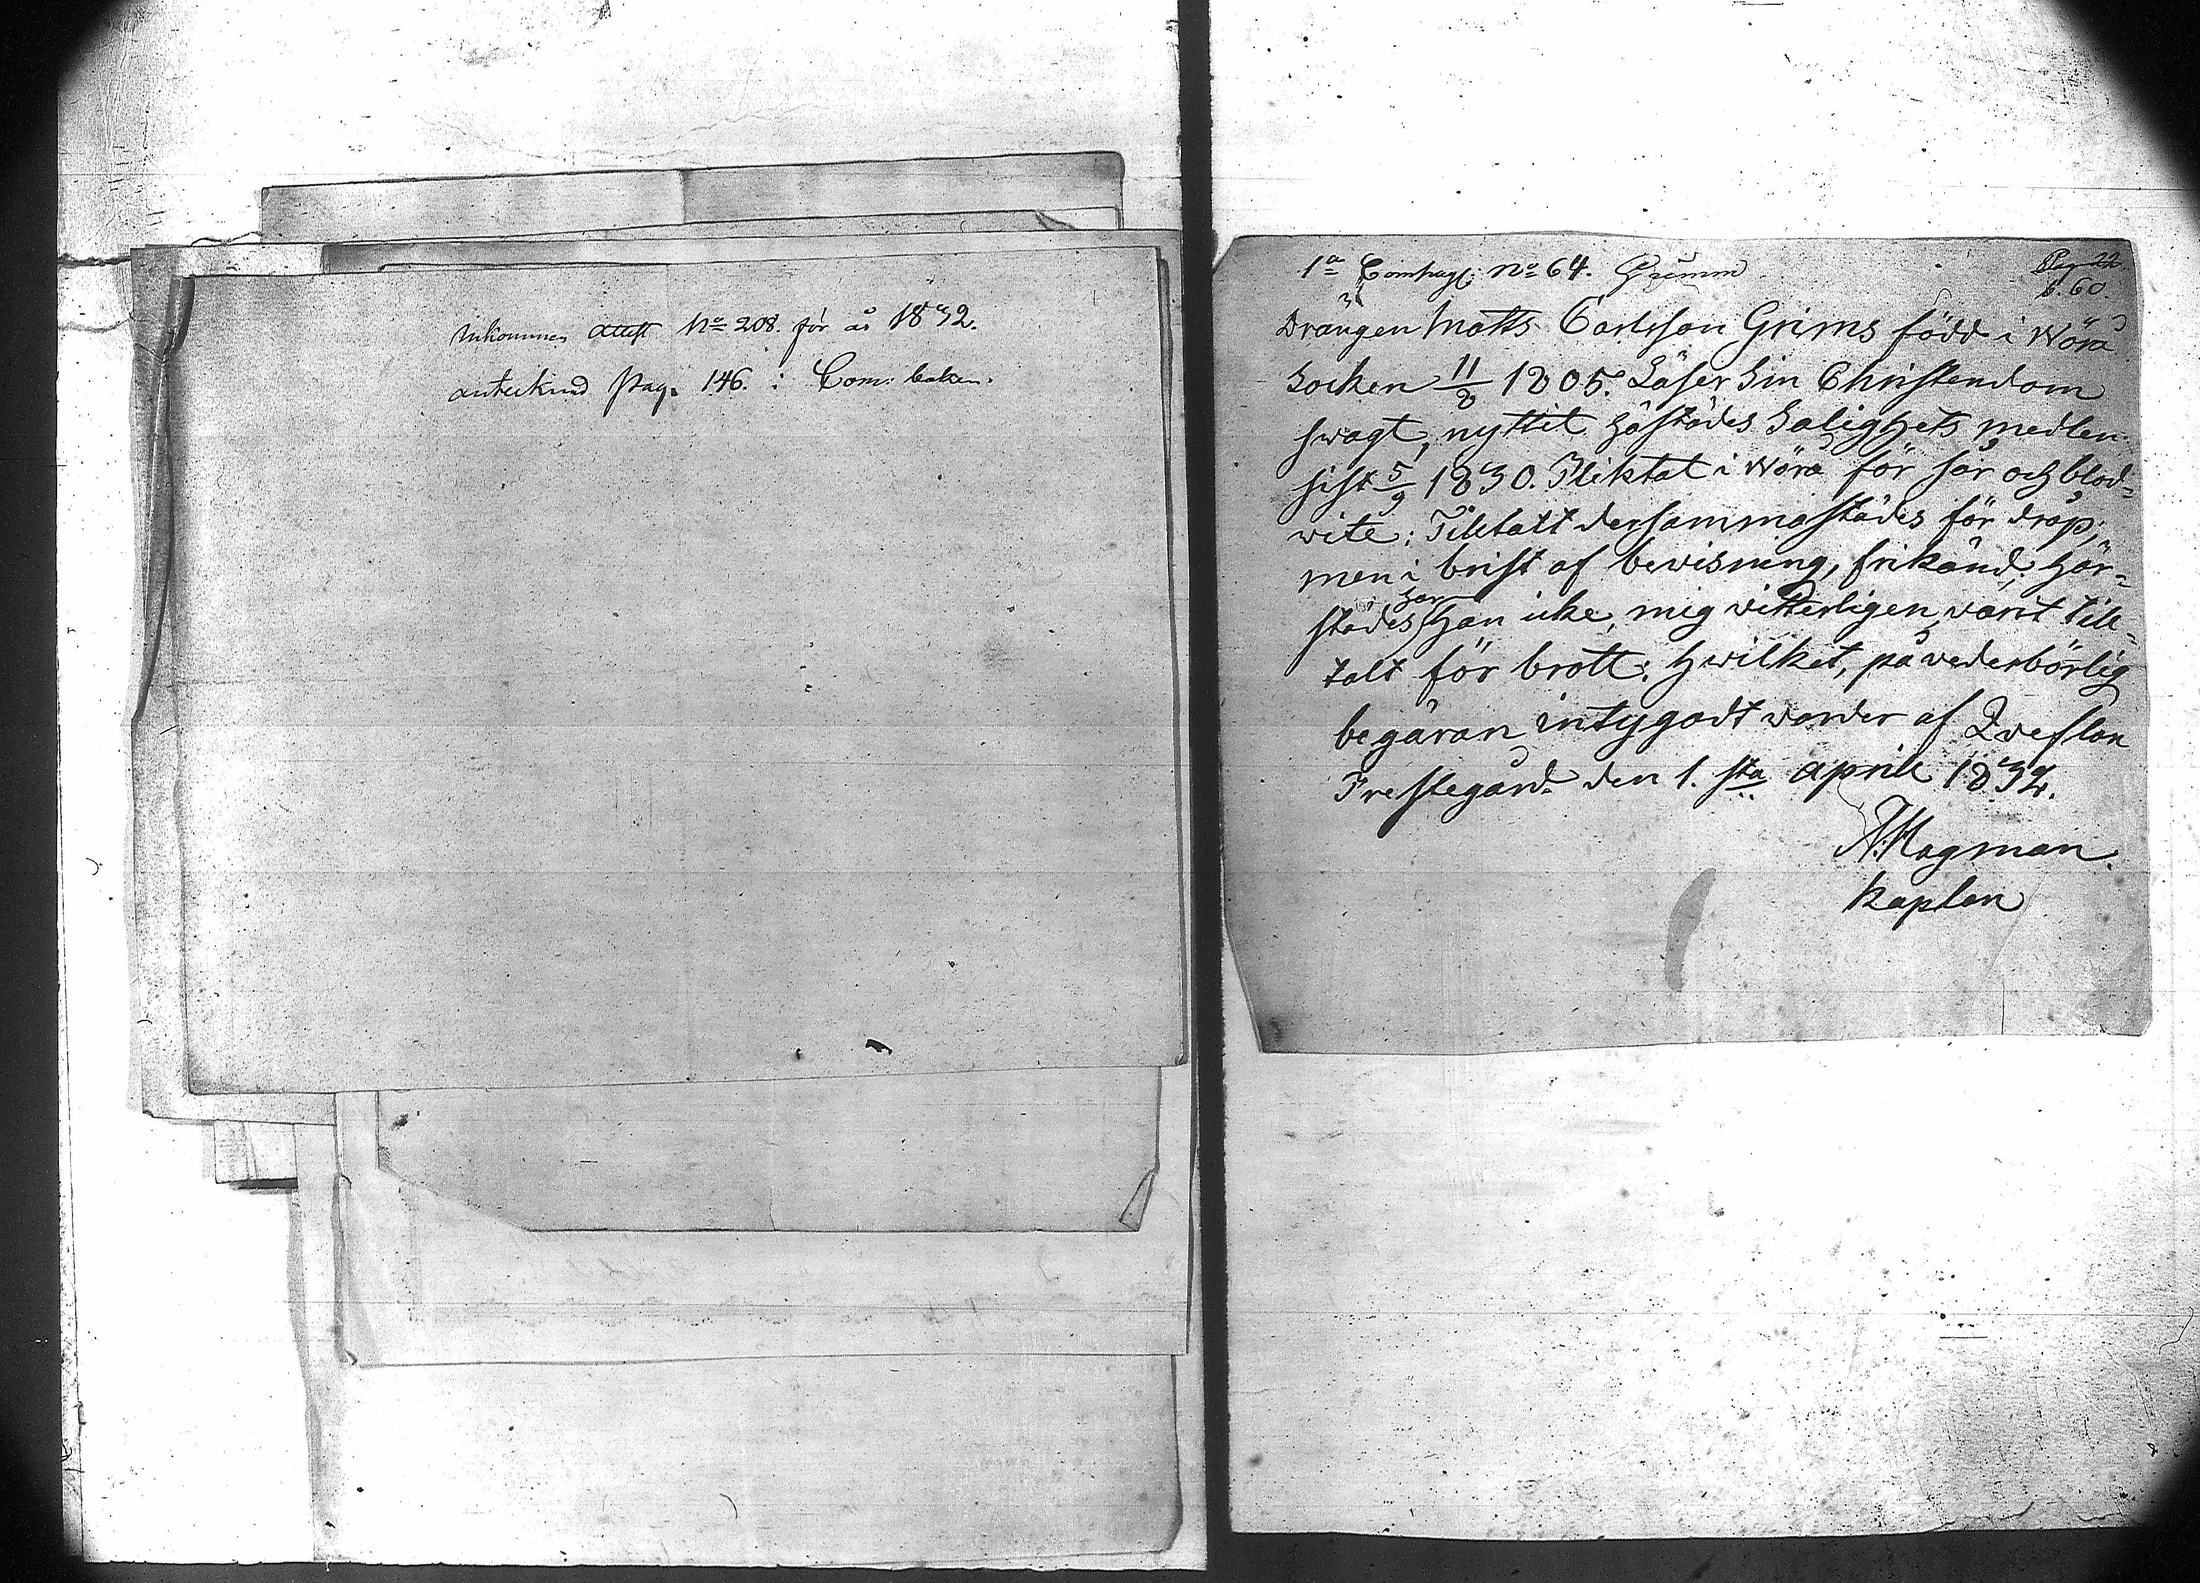 Inkommen attest No 208. för år 1832.
anteknad Pag. 146. i Com: boken.
1a Compagi: No 64. Grimm
Pag 22
b. 60.
Drängen Matts Carlsson Grims född i Wörå
Socken 11/8 1805. Läser Sin Christendom
swagt, nyttit häSTädes Salighets medlen
sist 5/9 1830. Pliktat i Wörå för sår och blod-
wite: Tilltalt dersammastädes för dråp;
men i brist af bevisning, frikänd; Här-
städes har han icke, mig vitterligen, varit till-
talt för brott: hwilket, på vederbörlig
begäran intygadt varder af Qveflax
Prestegård den 1.sta april 1832.
N: Hagman.
Kaplan